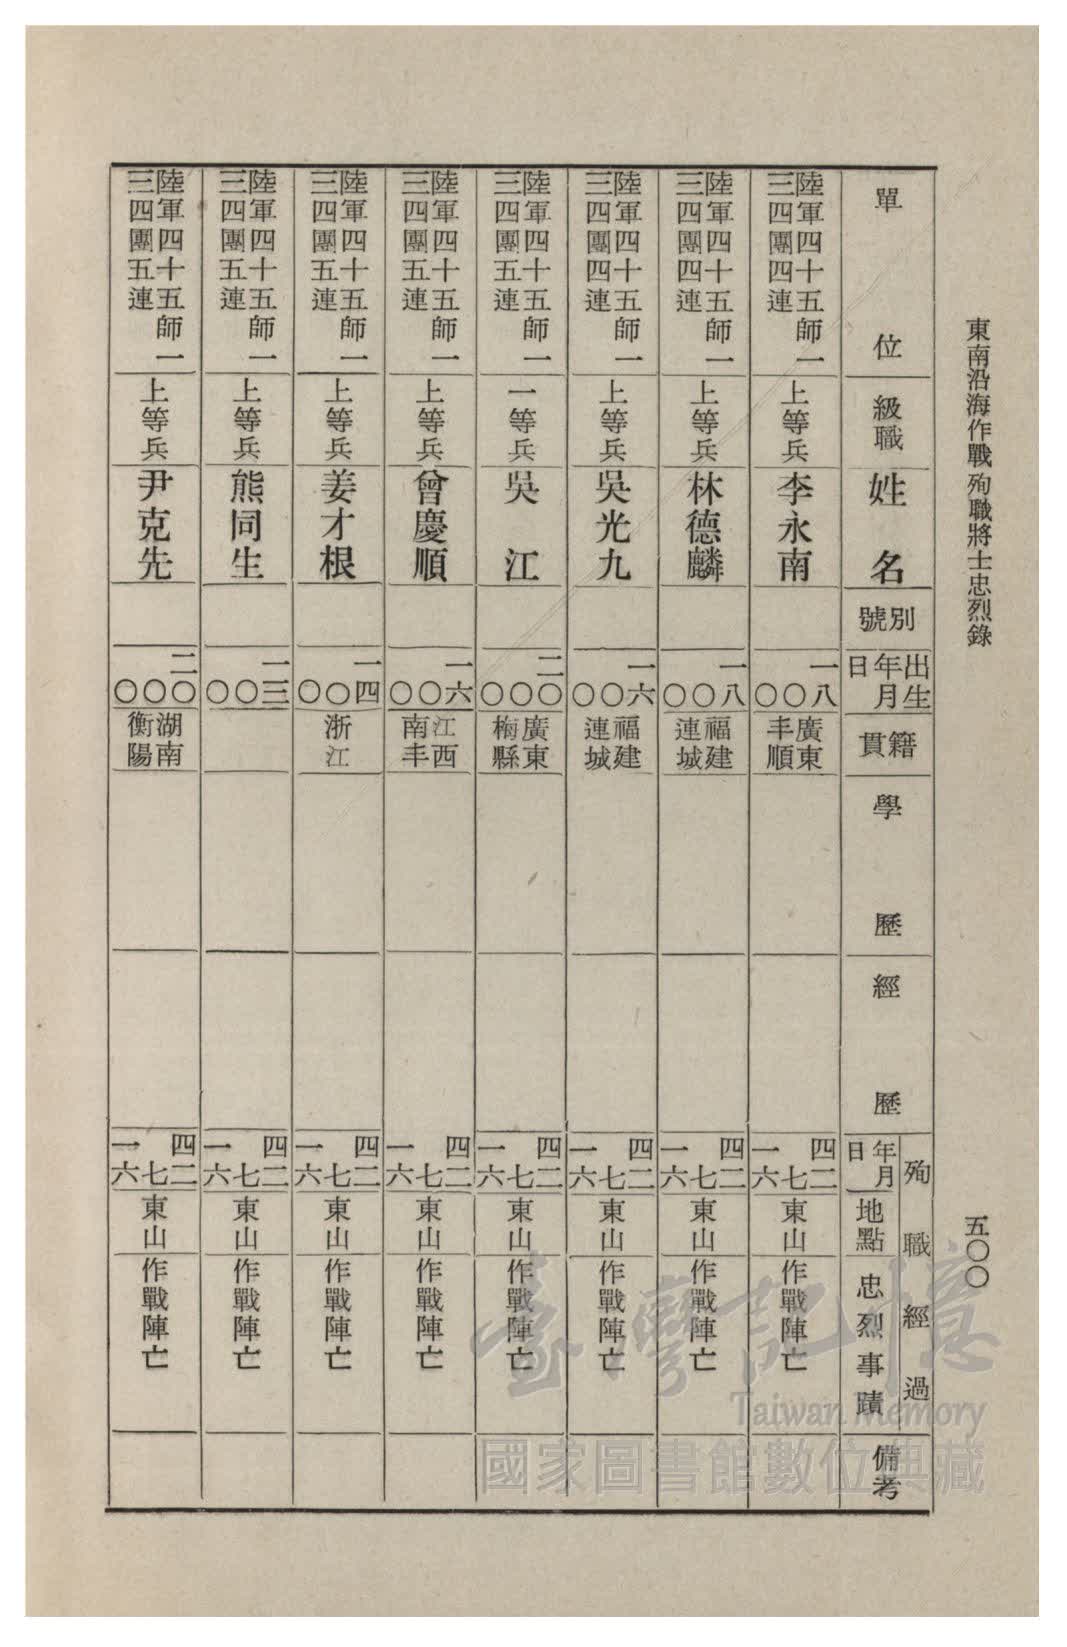 東南沿海作戰殉職將士忠烈錄
五〇〇
單位
級職
姓名
別號
出生
年月
日
籍貫
學歷
經歷
殉職經過
年月
日
地點
忠烈事蹟
備考
陸軍四十五師一
三四團四連
上等兵
李永南
一八
〇
〇
廣東
丰順
四二
七
一六
東山
作戰陣亡
陸軍四十五師一
三四團四連
上等兵
林德麟
一八
〇
〇
福建
連城
四二
七
一六
東山
作戰陣亡
陸軍四十五師一
三四團四連
上等兵
吳光九
一六
〇
〇
福建
連城
四二
七
一六
東山
作戰陣亡
陸軍四十五師一
三四團五連
一等兵
吳江
二〇
〇
〇
廣東
梅縣
四二
七
一六
東山
作戰陣亡
陸軍四十五師一
三四團五連
上等兵
曾慶順
一六
〇
〇
江西
南丰
四二
七
一六
東山
作戰陣亡
陸軍四十五師一
三四團五連
上等兵
姜才根
一四
〇
〇
浙江
四二
七
一六
東山
作戰陣亡
陸軍四十五師一
三四團五連
上等兵
熊同生
一三
〇
〇
四二
七
一六
東山
作戰陣亡
陸軍四十五師一
三四團五連
上等兵
尹克先
二〇
〇
〇
湖南
衡陽
四二
七
一六
東山
作戰陣亡
臺灣記憶
Taiwan Memory
國家圖書館數位典藏